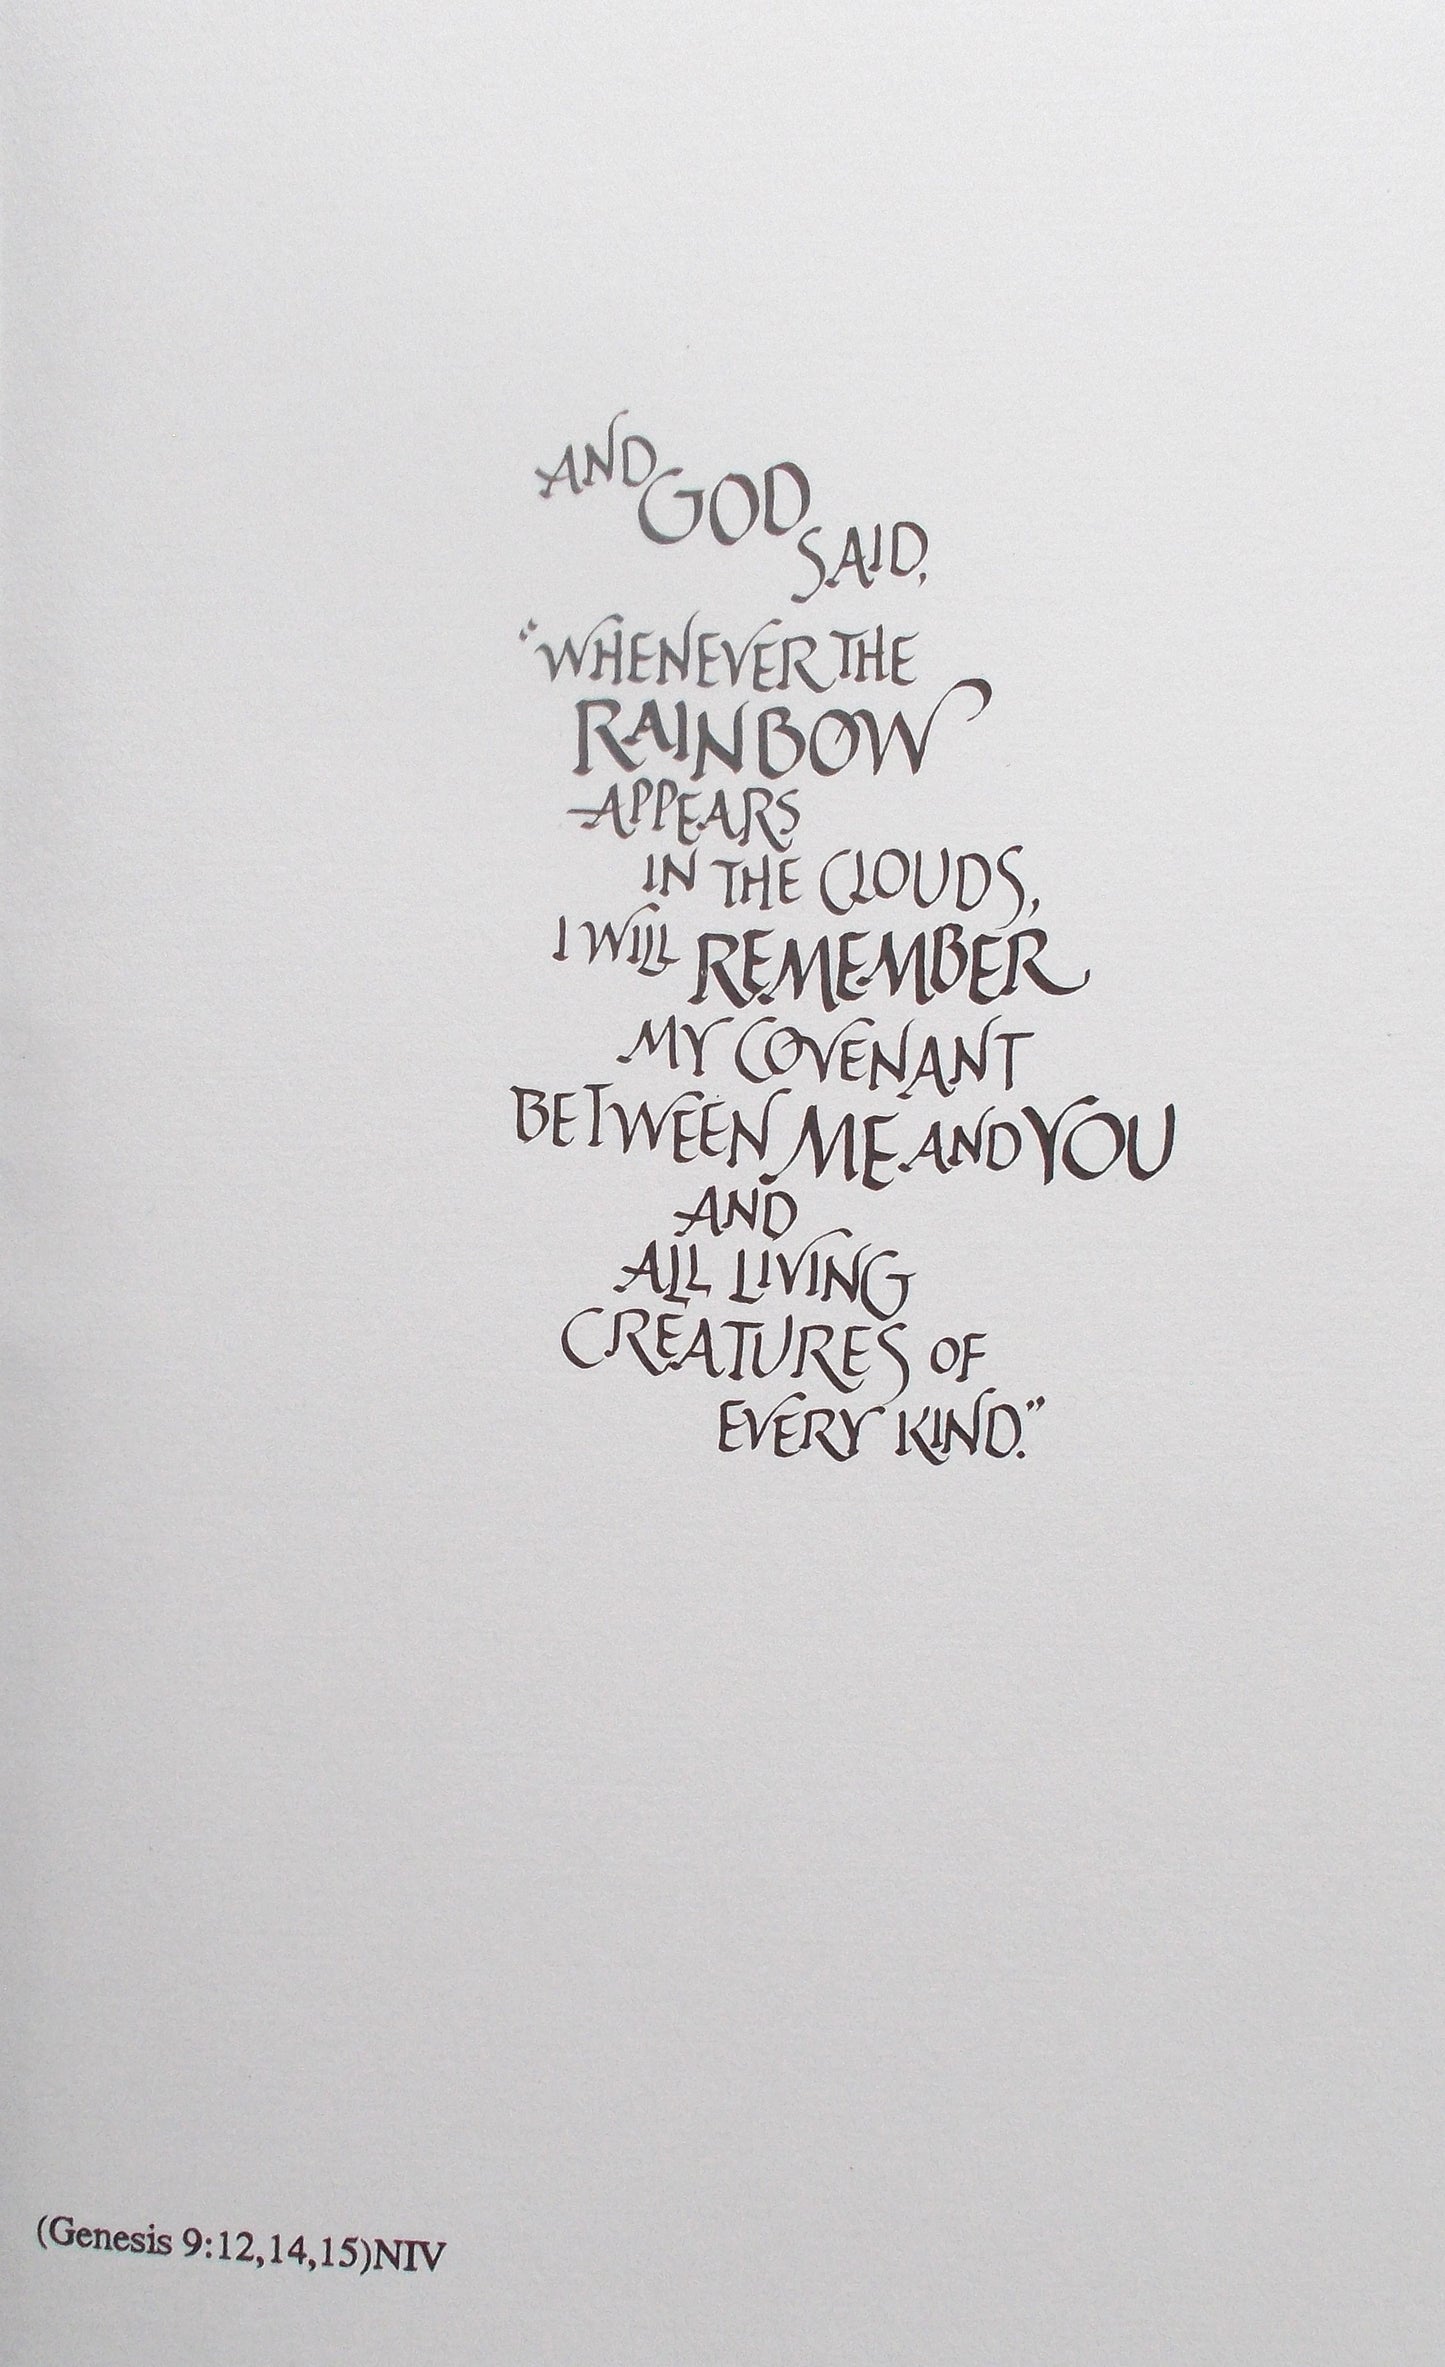 AND GOD SAID,
"WHENEVER THE
RAINBOW
APPEARS
IN THE CLOUDS,
I WILL REMEMBER
MY COVENANT
BETWEEN ME AND YOU
AND
ALL LIVING
CREATURES OF
EVERY KIND."
(Genesis 9:12,14,15)NIV